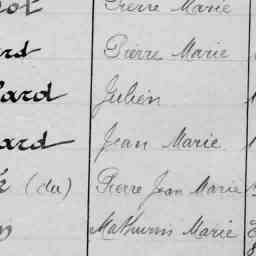 Pierre Marie
Pierre Marie
Julien
ard Jean Marie
(du) Pierre Jean Marie
Mathurin Marie